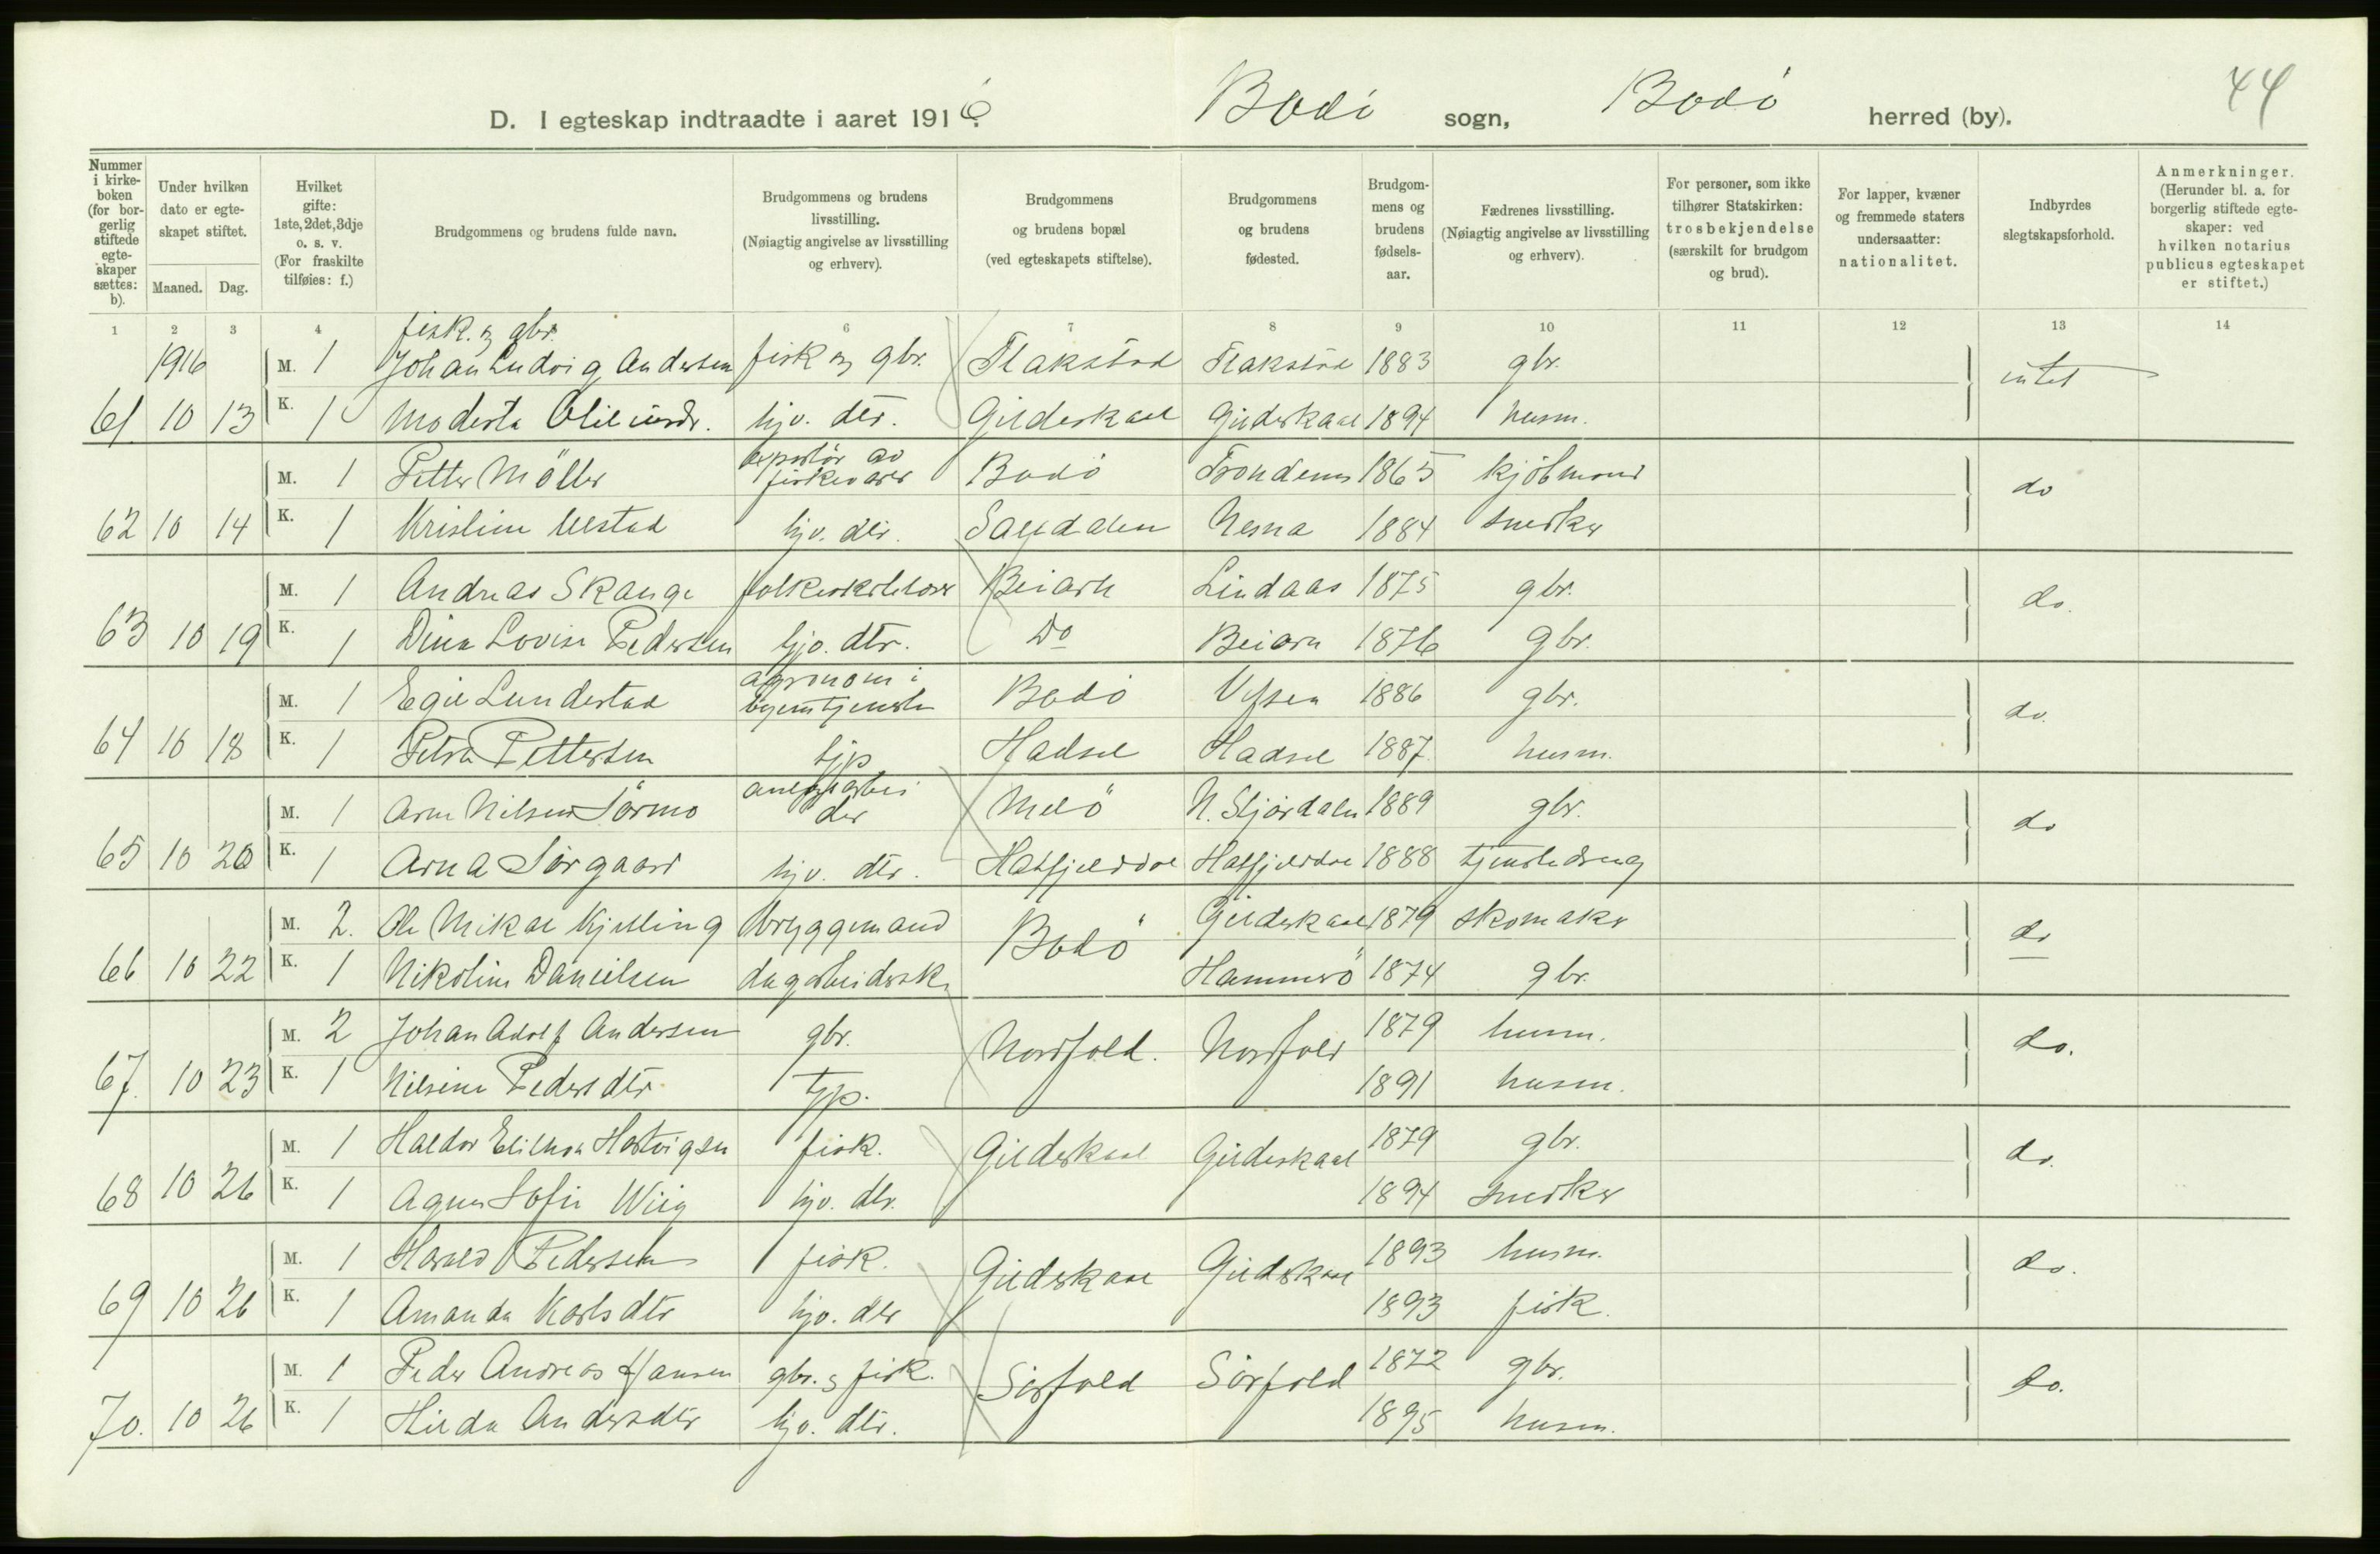 44
D. I egteskap indtraadte i aaret 1916. Bodö sogn, Bodö herred (by).
Nummer i kirkeboken (for borgerlig stiftede egteskaper sættes: b).
Under hvilken dato er egteskapet stiftet.
Maaned. Dag.
Hvilket gifte: 1ste, 2det, 3dje o. s. v. (For fraskilte tilføies: f.)
Brudgommens og brudens fulde navn.
Brudgommens og brudens livsstilling. (Nøiagtig angivelse av livsstilling og erhverv).
Brudgommens og brudens bopæl (ved egteskapets stiftelse).
Brudgommens og brudens fødested.
Brudgommens og brudens fødselsaar.
Fædrenes livsstilling. (Nøiagtig angivelse av livsstilling og erhverv).
For personer, som ikke tilhører Statskirken: trosbekjendelse (særskilt for brudgom og brud).
For lapper, kvæner og fremmede staters undersaatter: nationalitet.
Indbyrdes slegtskapsforhold.
Anmerkninger. (Herunder bl. a. for borgerlig stiftede egteskaper: ved hvilken notarius publicus egteskapet er stiftet.)
1 2 3 4 6 7 8 9 10 11 12 13 14
fisk. og gbr.
1916 M. 1 Johan Ludvig Andersen fisk og gbr. Flakstad Flakstad 1883 gbr. intet
61 10 13 K. 1 Modesta gjv. dtr. Gildeskaal Gildeskaal 1894 husm.
M. 1 Petter Möller exportör av fiskevarer Bodö Trondenes 1865 kjöbmand do
62 10 14 K. 1 Kristine hjv. dtr. Nesna 1884 snedker
M. 1 Andreas Skauge folkeskolelærer Beiarn Lindaas 1875 gbr. do.
63 10 19 K. 1 Dina Lovise Pedersen hjv. dtr. Do Beiarn 1876 gbr.
M. 1 Egil Lundestad agronom i Bodö 1886 gbr. do.
64 10 18 K. 1 Petra Pettersen tjp Hadsel Hadsel 1887 husm.
M. 1 Arne Nilsen Sörmo anlægsarbeider Melö N. Stjördalen 1889 gbr. do
65 10 20 K. 1 Arna Sörgaard hjv. dtr. Hatfjelddal Hatfjelddal 1888 tjenestedreng
M. 2. Ole Mikal Kjelling bryggemand Bodö Gildeskaal 1879 skomaker do
66 10 22 K. 1 Nikoline Danielsen dagarbeiderske Hammerö 1874 gbr.
M. 2 Johan Adolf Andersen gbr. Nordfold. Nordfold 1879 husm. do.
67. 10 23 K. 1 Nilsine Pedersdtr tjp. 1891 husm.
M. 1 Haldor Hartvigsen fisk. Gildeskaal Gildeskaal 1879 gbr. do.
68 10 26 K. 1 Agnes Sofie Wiig hjv. dtr. 1894 snedker
M. 1 Harald Pedersen fisk. Gildeskaal Gildeskaal 1893 husm. do.
69 10 26 K. 1 Amanda Karlsdtr hjv. dtr 1893 fisk.
M. 1 Peder Andreas Hansen gbr. og fisk. Sörfold Sörfold 1872 gbr. do.
70. 10 26 K. 1 Hilda Andersdtr hjv. dtr. 1895 husm.